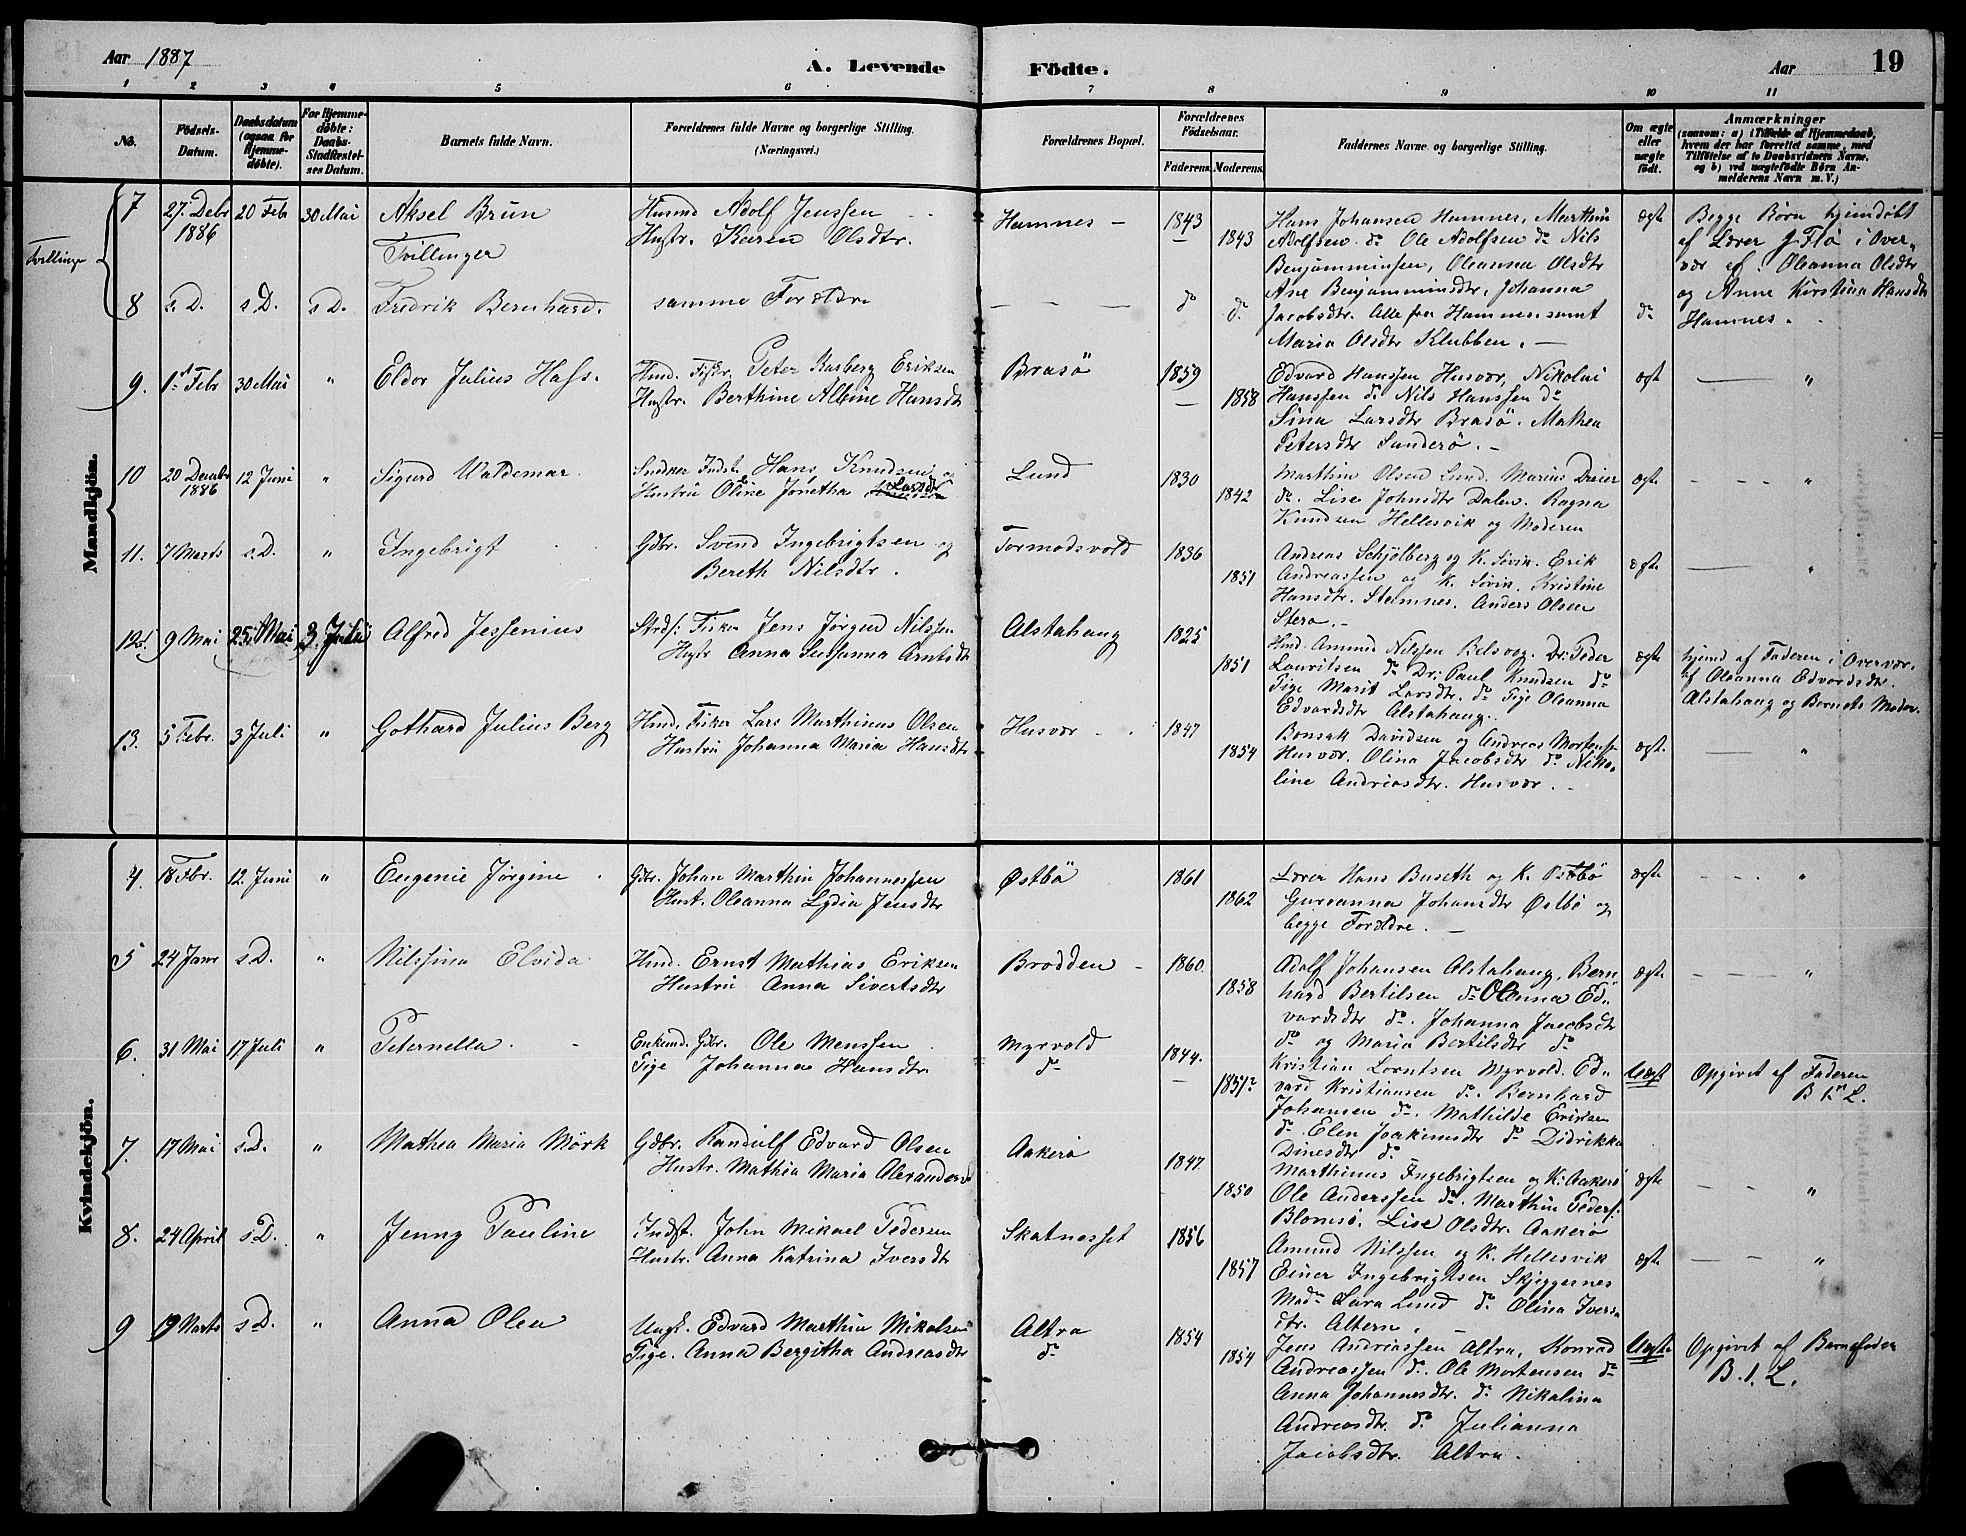 Aar 1887
A. Levende Födte.
Aar
19
1 2 3 4 5 6 7 8 9 10 11
No.
Födsels-Datum.
Daabsdatum (ogsaa for Hjemme-döbte).
For Hjemme-döbte: Daabs-Stadfæstel-ses Datum.
Barnets fulde Navn.
Forældrenes fulde Navne og borgerlige Stilling. (Næringsvei.)
Forældrenes Bopæl.
Forældrenes Födselsaar.
Faderens. Moderens.
Faddernes Navne og borgerlige Stilling.
Om ægte eller uægte födt.
Anmærkninger
(saasom: a) i Tilfælde af Hjemmedaab, hvem der har forrettet samme, med Tilföielse af to Daabsvidners Navne, og b) ved uægtefödte Börn An-melderens Navn m. V.)
Mandkjön.
Tvillinge
7 27. Debr 1886 20 Feb 30 Mai Aksel Brun
Tvillinger
Husmd Adolf Jenssen
Hustr. Karen Olsdtr.
Hamnes - 1843 1843
Hans Johansen Hamnes, Marthin
Adolfsen do Ole Adolfsen do Nils
Benjaminsen, Oleanna Olsdtr
Ane Benjaminsdtr, Johanna
Jacobsdtr. Alle fra Hamnes samt
Maria Olsdtr Klubben. -
ægte
Begge Børn hjemdøbt
af Lærer J Flø i Over-
vær af: Oleanna Olsdtr
og Anne Kirstina Hansdtr
Hamnes.
8 s. D. s D. s D. Fredrik Bernhard. samme Forældre - - - do do do
9. 1ste Febr 30 Mai " Eldor Julius Hass.
Hmd. Fisker. Peter Kasberg Eriksen
Hustr. Berthine Albine Hansdtr
Brasö 1859 1858
Edvard Hanssen Husvær, Nikolai
Hanssen do Nils Hanssen do
Sina Larsdtr Brasö. Mathea
Petersdtr Sanderö. -
ægte - "
10 20 Decmbr 1886 12 Juni " Sigurd Waldemar
Snedker Indst. Hans Knudsen og
Hustru Oline Jonetha Larsdtr
Lund 1830 1842
Marthin Olsen Lund. Marius Dreier
do. Lise Johnsdtr Dalen. Ragna
Knudsen Hellesvik og Moderen
ægte - - - "
11. 7 Marts s. D. " Ingebrigt
Gdbr. Svend Ingebrigtsen og
Bereth Nilsdtr.
Tormodsvold 1836 1851
Andreas Schjølberg og K. Søvin. Erik
Andreassen og K. Søvin. Kristine
Hansdtr. Stamnes. Anders Olsen
Sterø. -
ægte - "
12. 9 Mai 25 Mai 3. Juli Alfred Jessenius
Strds: Fisker Jens Jørgen Nilssen
Hustr Anna Susanna Arntsdtr
Alstahaug 1825 1851
Hmd. Amund Nilssen Belsvog. Dr: Peder
Lauritsen do Dr: Paul Knudsen do
Pige Marit Larsdtr. do Pige Oleanna
Edvardsdtr Alstahaug.
ægte
hjemd af Faderen i Overvær.
af Oleanna Edvardsdtr.
Alstahaug og Barnets Moder.
13. 5 Febr. 3 Juli " Gothard Julius Berg
Hmd. Fisker Lars Marthinus Olsen
Hustru Johanna Maria Hansdtr
Husvær 1847 1854
Bonsak Davidsen og Andreas Mortens:
Husvær. Olina Jacobsdtr do Niko-
line Andreasdtr. Husvær. -
ægte. - "
Kvindekjön.
4. 18 Fbr. 12. Juni " Eugenie Jørgine
Gdbr. Johan Marthin Johannessen
Hust. Oleanna Lydia Jensdtr
Østbö 1861 1862
Lærer Hans Buseth og K. Østbö
Gureanna Johansdtr Østbö og
begge Forældre. -
ægte - - - "
5 24 Janr s. D. " Nilssina Elvida
Hmd. Ernst Mathias Eriksen
Hustru Anna Sivertsdtr
Brødden - 1860. 1858
Adolf Johansen Alstahaug. Bern
hard Bertilsen do Oleanna Ed-
vardsdtr do. Johanna Jacobsdtr
do og Maria Bertilsdtr do
ægte - - - "
6. 31 Mai 17 Juli " Peternella.
Enkemd. Gdbr. Ole Menssen
Pige Johanna Hansdtr
Myrvold
do
1844. 1851
Kristian Lorntsen Myrvold. Ed-
vard Kristiansen do. Bernhard
Johansen do. Mathilde Eriksen
do Elen Joakimsdtr do Didrikka
Dinesdtr do
Uægt
Opgivet af Faderen
B. 1. L.
7. 17 Mai s. D. " Mathea Maria Mörk
Gdbr. Randulf Edvard Olsen
Hustr. Mathea Maria Alexandersd
Aakerö 1847. 1850
Marthinus Ingebrigtsen og K. Aakerö
Ole Anderssen do. Marthin Peders:
Blomsö. Lise Olsdtr. Aakerö
ægte - - "
8. 24 April s. D. " Jenny Pauline
Indst. John Mikael Pedersen
Hustr. Anna Katrina Iversdtr
Skatnesset 1856 1857
Amund Nilssen og K. Hellesvik
Einer Ingebrigtsen Skjeggernes
Madm Lara Lund do Olina Ivers
dtr. Altern. -
ægte - - "
9 19 Marts s. D. " Anna Olea
Ungk. Edvard Marthin Mikalsen
Pige. Anna Bergitha Andreasdtr
Altra
do
1854 1854
Jens Andreassen Altra, Konrad
Andreassen do. Ole Mortensen do
Anna Johannesdtr. do Nikalina
Andreasdtr do Julianna
Jacobsdtr. Altra.
Uægte
Opgivet af Barnefader
B. 1. L.